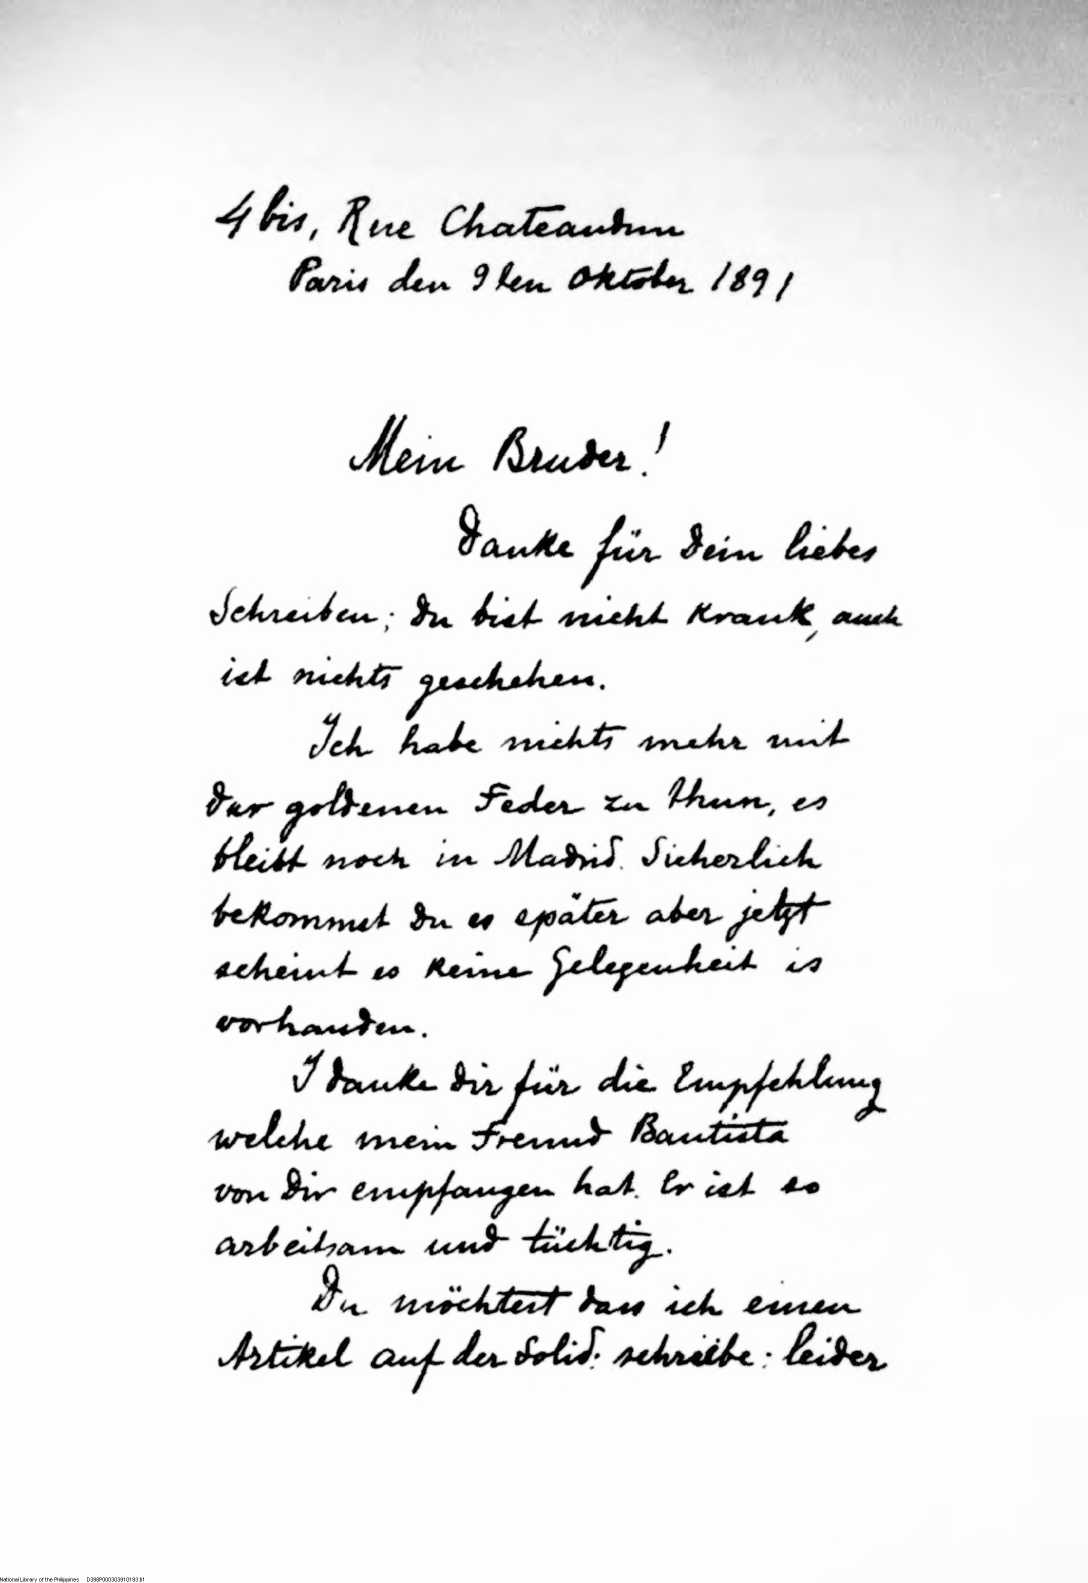 4 bis, Rue Chateaudun
Paris den 9ten Oktober 1891
Mein Bruder!
Danke für Dein liebes
Schreiben; du bist nicht krank, auch
ist nichts geschehen.
Ich habe nichts mehr mit
der goldenen Feder zu thun, es
bleibt noch in Madrid. Sicherlich
bekommst du es später aber jetzt
scheint es keine Gelegenheit is
vorhanden.
I danke dir für die Empfehlung
welche mein Freund Bautista
von dir empfangen hat. Er ist so
arbeitsam und tüchtig.
Du möchtest dass ich einen
Artikel auf der Solid. schreibe: leider
National Library of the Philippines